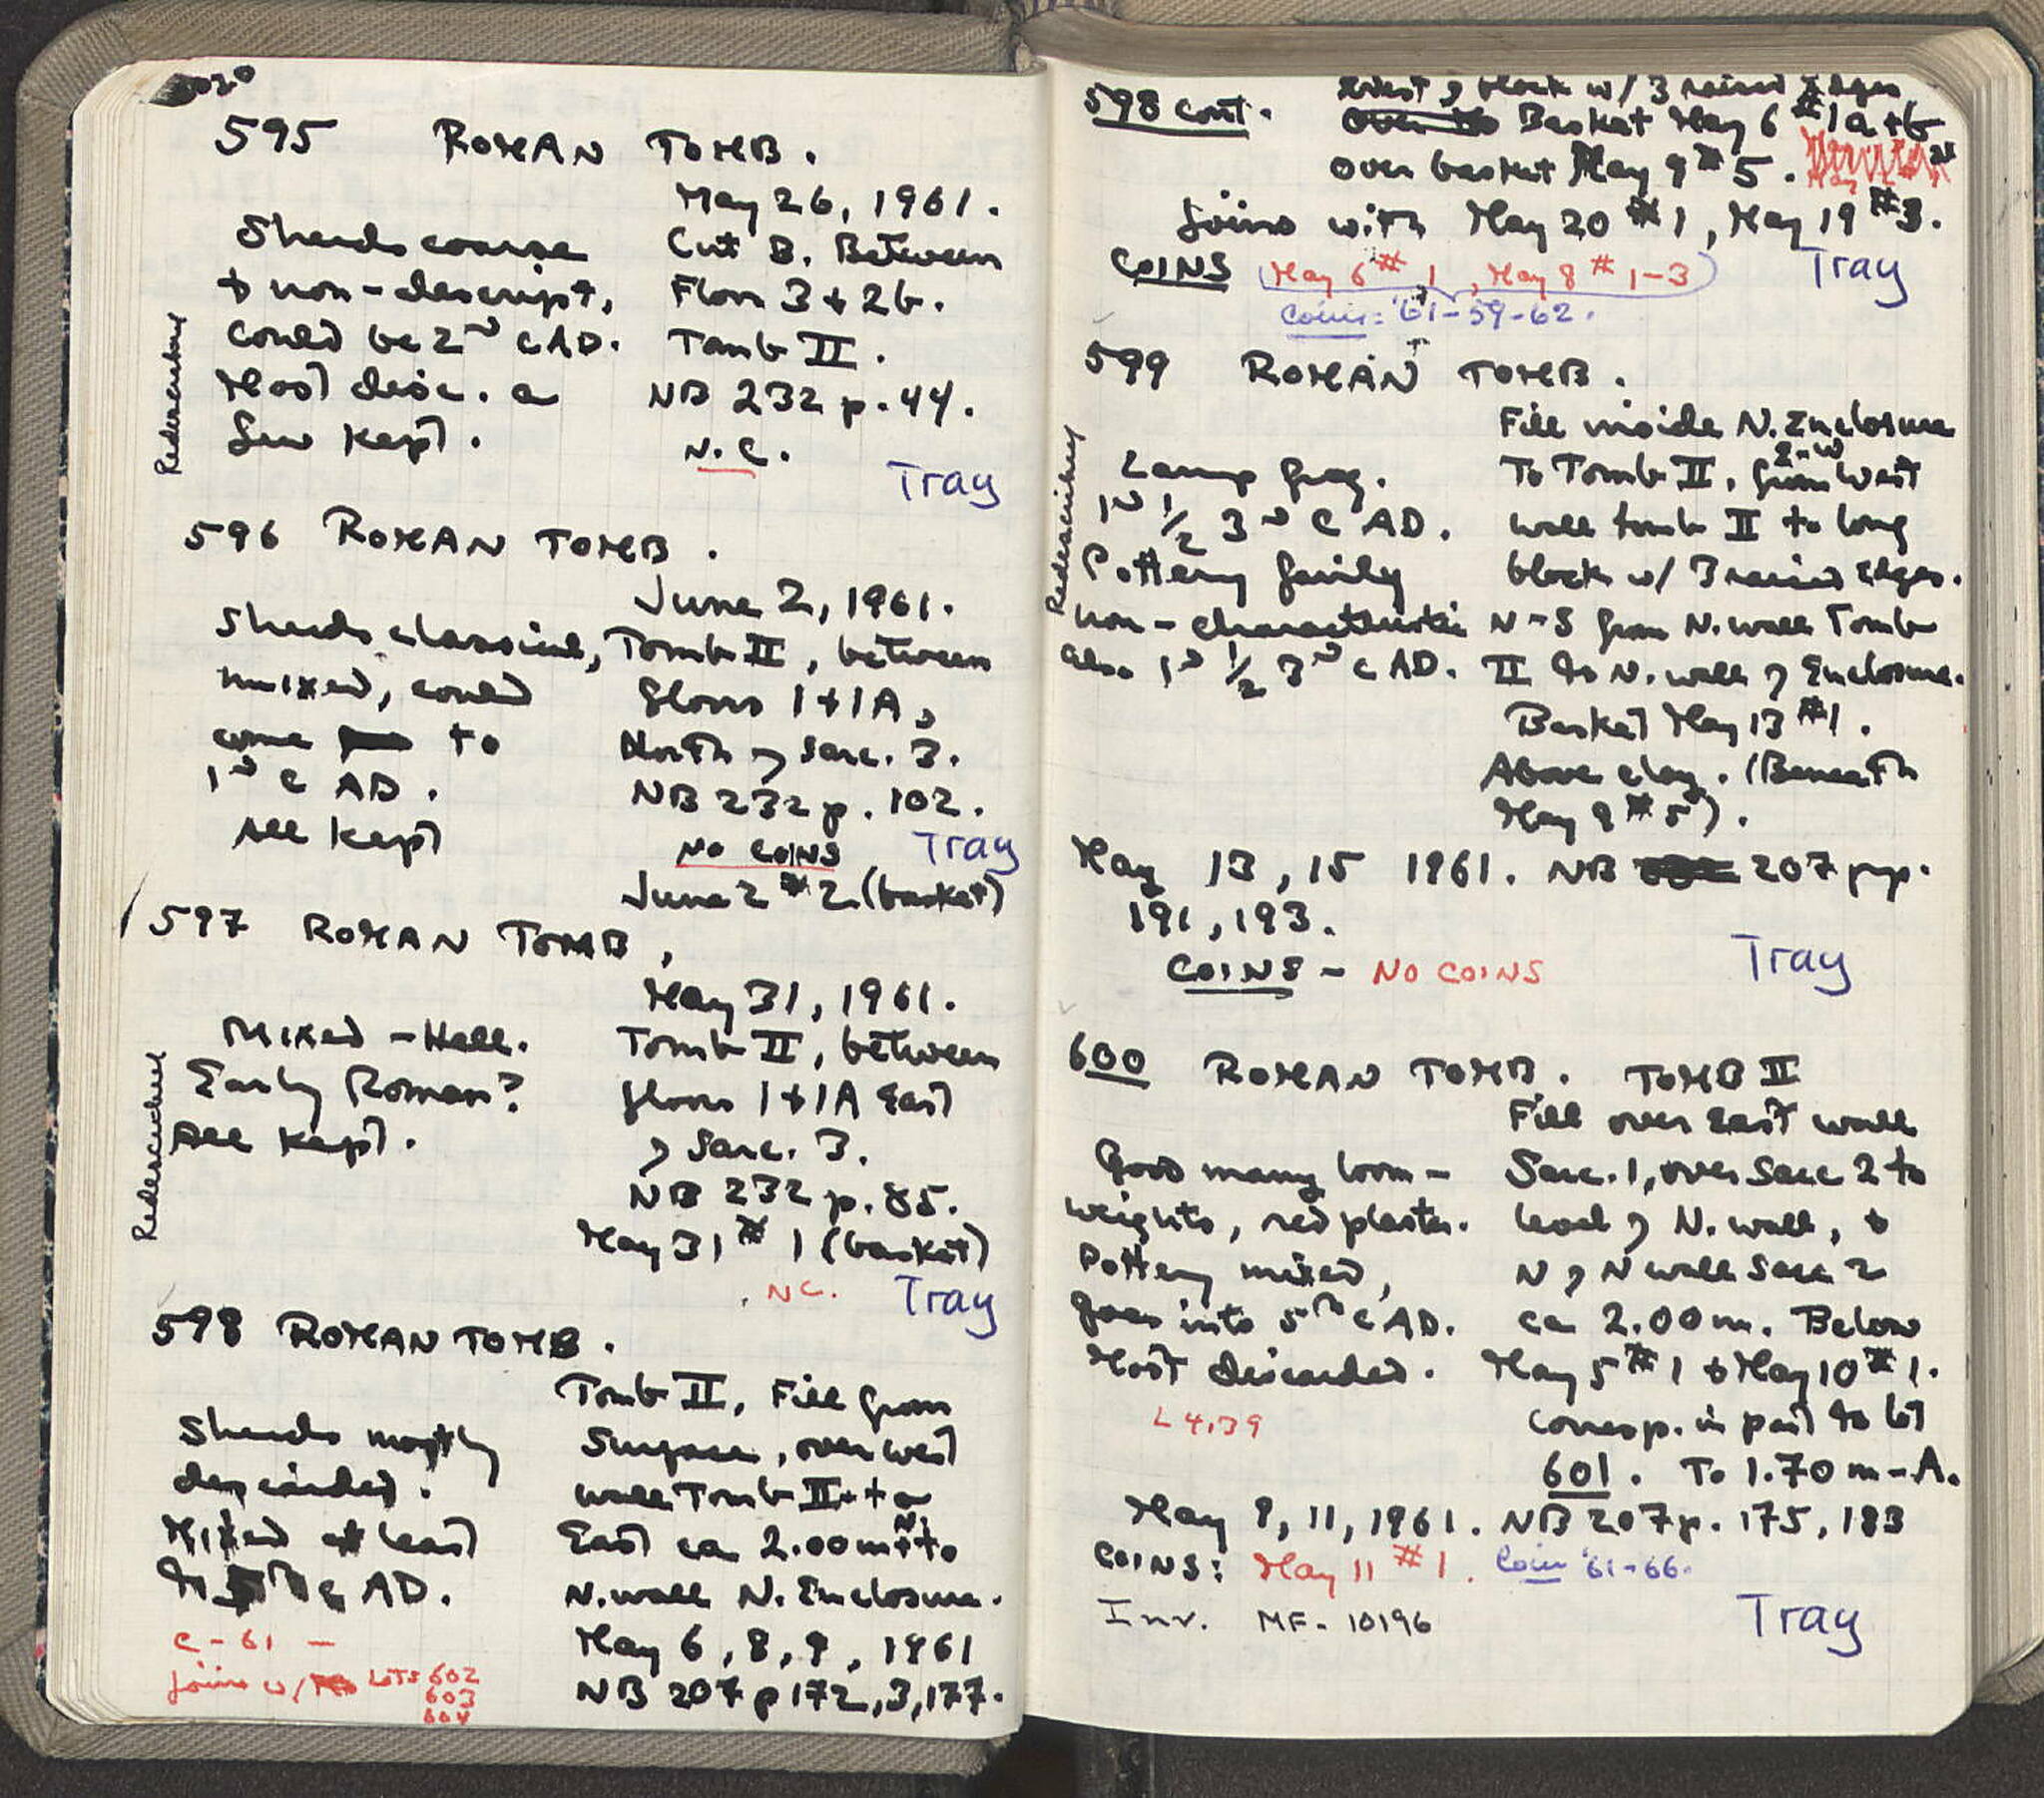 595 ROMAN TOMB.
May 26, 1961.
Sherds coarse
& non-descript,
could be 2nd c AD.
Most disc. a
few kept.
Cut B. Between
Floors 3 & 2b.
Tomb II.
NB 232 p. 44.
N.C.
Tray
Redescribed
596 ROMAN TOMB.
June 2, 1961.
Sherds classical,
mixed, could
come to
1st c AD.
All kept
Tomb II, between
floors 1 & 1A,
North of Sarc. 3.
NB 232 p. 102.
NO COINS
Tray
June 2 #2 (basket)
597 ROMAN TOMB,
May 31, 1961.
Mixed - Hell.
Early Roman?
All kept.
Tomb II, between
floors 1 & 1A East
of Sarc. 3.
NB 232 p. 85.
May 31 #1 (basket)
NC.
Tray
Redescribed
598 ROMAN TOMB.
Sherds mostly
discarded.
Mixed at least
to 5th c AD.
C-61 -
Joins w/ LOTS 602
603
604
Tomb II, Fill from
Surface, over west
wall Tomb II & to
East ca 2.00 m N. to
N. wall N. Enclosure.
May 6, 8, 9, 1961
NB 207 p 172, 3, 177.
598 cont.
West of block w/ 3 raised edges
Basket May 6 #1a+b
over basket May 9 #5.
Joins with May 20 #1, May 19 #3.
COINS (May 6 #1, May 8 #1-3)
Coins: '61-59-62.
Tray
599 ROMAN TOMB.
Lamp frag.
1st 1/2 3rd c AD.
Pottery fairly
non-characteristic
also 1st 1/2 3rd c AD.
Redescribed
Fill inside N. Enclosure
To Tomb II, E-W from West
wall tomb II to long
block w/ 3 raised edges.
N-S from N. wall Tomb
II to N. wall of Enclosure.
Basket May 13 #1.
Above clay. (Beneath
May 9 #5).
May 13, 15 1961. NB 207 pp.
191, 193.
COINS - NO COINS
Tray
600 ROMAN TOMB. TOMB II
Good many loom-
weights, red plaster.
Pottery mixed,
goes into 5th c AD.
Most discarded.
L 4139
Fill over East wall
Sarc. 1, over Sarc 2 to
level of N. wall, &
N of N wall Sarc 2
ca 2.00 m. Below
May 5 #1 & May 10 #1.
corresp. in part to lot
601. To 1.70 m-A.
May 8, 11, 1961. NB 207 p. 175, 183
COINS: May 11 #1. Coin '61-66.
Inv. MF-10196
Tray